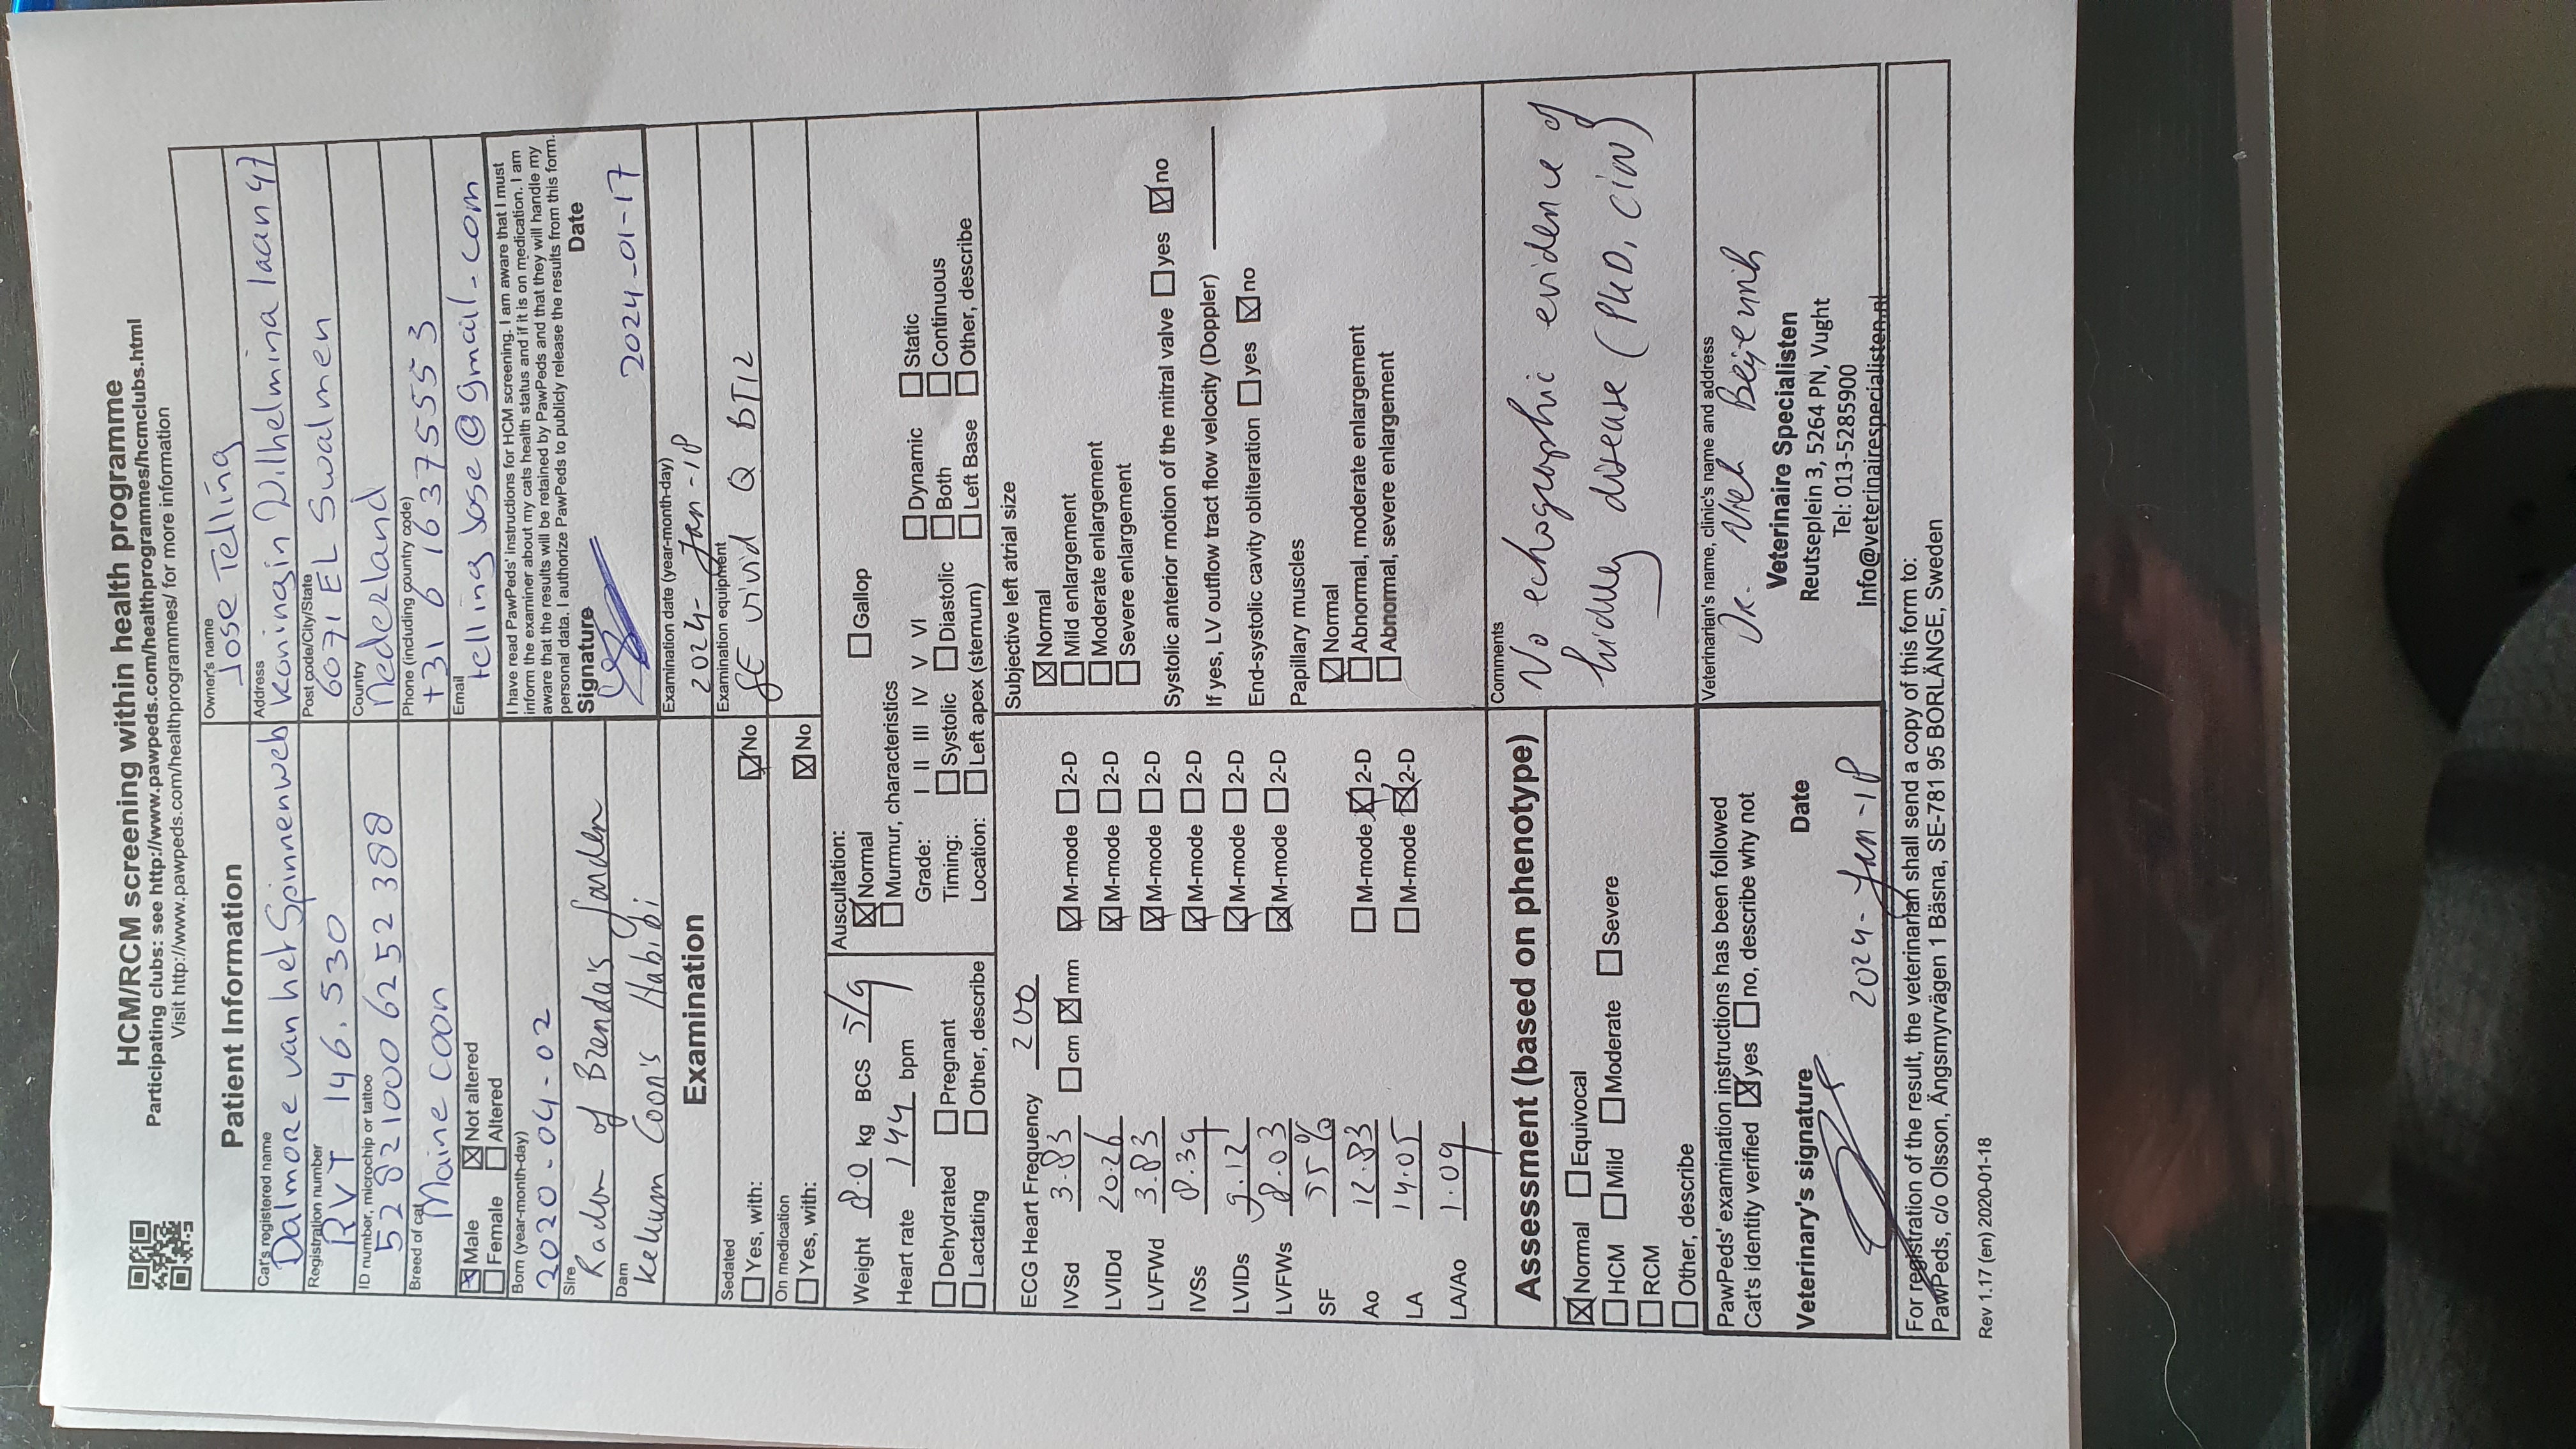 HCM/RCM screening within health programme
Participating clubs: see http://www.pawpeds.com/healthprogrammes/hcmclubs.html
Visit http://www.pawpeds.com/healthprogrammes/ for more information
Patient Information
Cat's registered name
Dalmore van het Spinnenweb
Registration number
RVT 146.530
ID number, microchip or tattoo
528210006252388
Breed of cat
Maine Coon
☒ Male ☒ Not altered
☐ Female ☐ Altered
Born (year-month-day)
2020-04-02
Sire
Radon of Brenda's Garden
Dam
Kelkum Coon's Habibi
Owner's name
Jose Telling
Address
Koningin Wilhelmina laan 47
Post code/City/State
6071 EL Swalmen
Country
Nederland
Phone (including country code)
+31 6 16375553
Email
telling.jose@gmail.com
I have read PawPeds' instructions for HCM screening. I am aware that I must
inform the examiner about my cats health status and if it is on medication. I am
aware that the results will be retained by PawPeds and that they will handle my
personal data. I authorize PawPeds to publicly release the results from this form.
Signature Date
2024-01-17
Examination
Sedated
☐ Yes, with: ☒ No
On medication
☐ Yes, with: ☒ No
Examination date (year-month-day)
2024-Jan-18
Examination equipment
GE vivid Q BT12
Weight 8.0 kg BCS 5/9
Heart rate 144 bpm
☐ Dehydrated ☐ Pregnant
☐ Lactating ☐ Other, describe
Auscultation:
☒ Normal ☐ Gallop
☐ Murmur, characteristics
Grade: I II III IV V VI
Timing: ☐ Systolic ☐ Diastolic ☐ Both ☐ Continuous
☐ Dynamic ☐ Static
Location: ☐ Left apex (sternum) ☐ Left Base ☐ Other, describe
ECG Heart Frequency 200
☐ cm ☒ mm
IVSd 3.83 ☒ M-mode ☐ 2-D
LVIDd 20.26 ☒ M-mode ☐ 2-D
LVFWd 3.83 ☒ M-mode ☐ 2-D
IVSs 8.39 ☒ M-mode ☐ 2-D
LVIDs 9.12 ☒ M-mode ☐ 2-D
LVFWs 8.03 ☒ M-mode ☐ 2-D
SF 55%
Ao 12.83 ☐ M-mode ☒ 2-D
LA 14.05 ☐ M-mode ☒ 2-D
LA/Ao 1.09
Subjective left atrial size
☒ Normal
☐ Mild enlargement
☐ Moderate enlargement
☐ Severe enlargement
Systolic anterior motion of the mitral valve ☐ yes ☒ no
If yes, LV outflow tract flow velocity (Doppler)
End-systolic cavity obliteration ☐ yes ☒ no
Papillary muscles
☒ Normal
☐ Abnormal, moderate enlargement
☐ Abnormal, severe enlargement
Assessment (based on phenotype)
☒ Normal ☐ Equivocal
☐ HCM ☐ Mild ☐ Moderate ☐ Severe
☐ RCM
☐ Other, describe
Comments
No echographic evidence of
kidney disease (PKD, CIN)
PawPeds' examination instructions has been followed
Cat's identity verified ☒ yes ☐ no, describe why not
Veterinary's signature Date
2024-Jan-18
Veterinarian's name, clinic's name and address
Dr. Niek Beijerink
Veterinaire Specialisten
Reutseplein 3, 5264 PN, Vught
Tel: 013-5285900
Info@veterinairespecialisten.nl
For registration of the result, the veterinarian shall send a copy of this form to:
PawPeds, c/o Olsson, Ängsmyrvägen 1 Bäsna, SE-781 95 BORLÄNGE, Sweden
Rev 1.17 (en) 2020-01-18